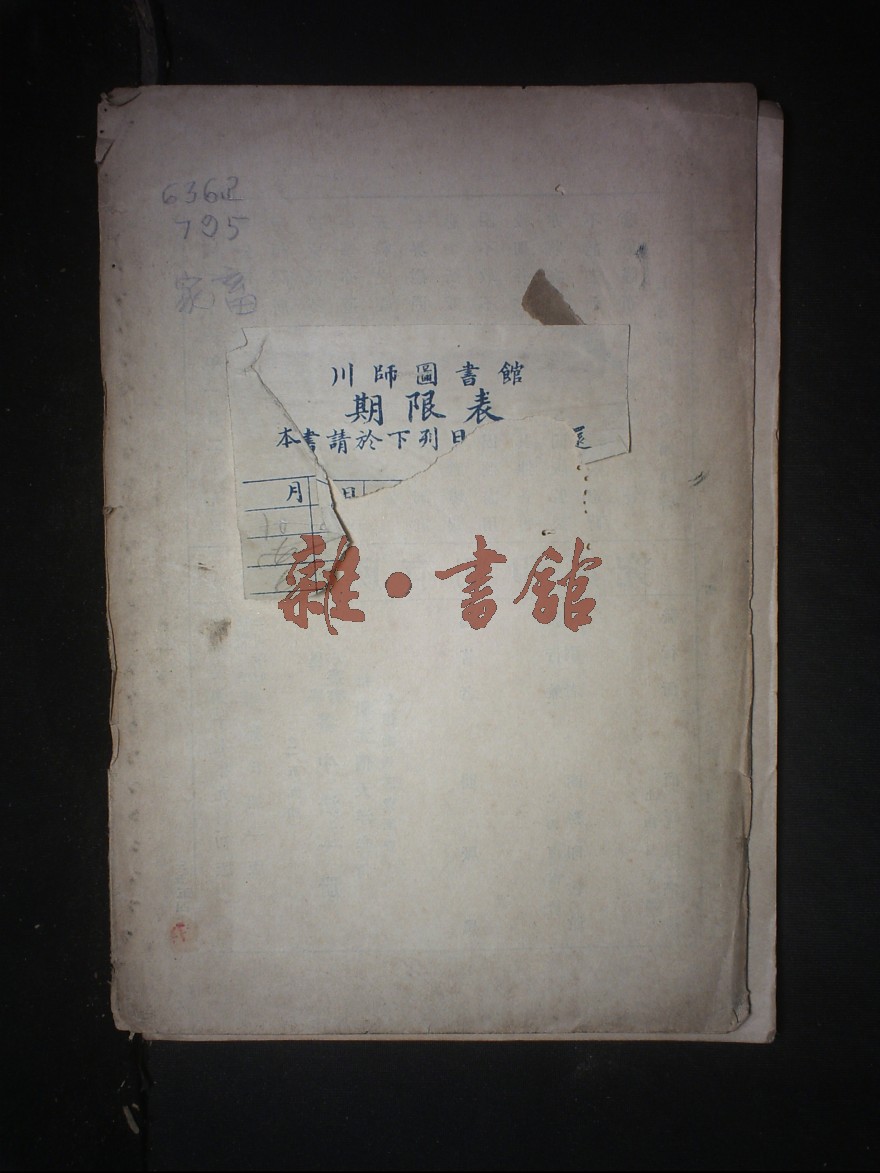 795
家畜
川師圖書館
期限表
本書請於下列日
還
月 日
雜·書館